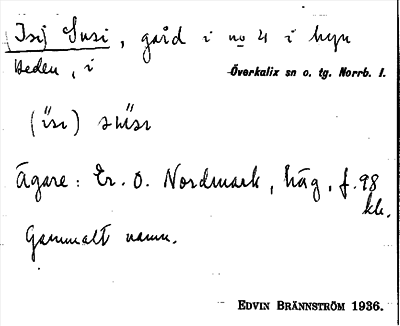 (Isij Susi, gård i no 4 i byn
Heden, i Överkalix sn o. tg. Norrb. l.
(isi) süsı
Ägare: Er. O. Nordmark, häg, f. 98
kk.
Gammalt namn.
EDVIN BRÄNNSTRÖM 1936.